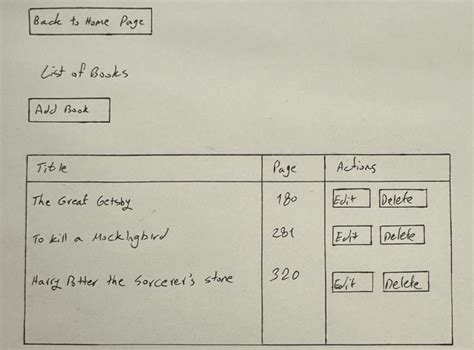 Back to Home Page
List of Books
Add Book
Title Page Actions
The Great Getsby 180 Edit Delete
To kill a Mockingbird 281 Edit Delete
Harry Potter the Sorcerer's stone 320 Edit Delete